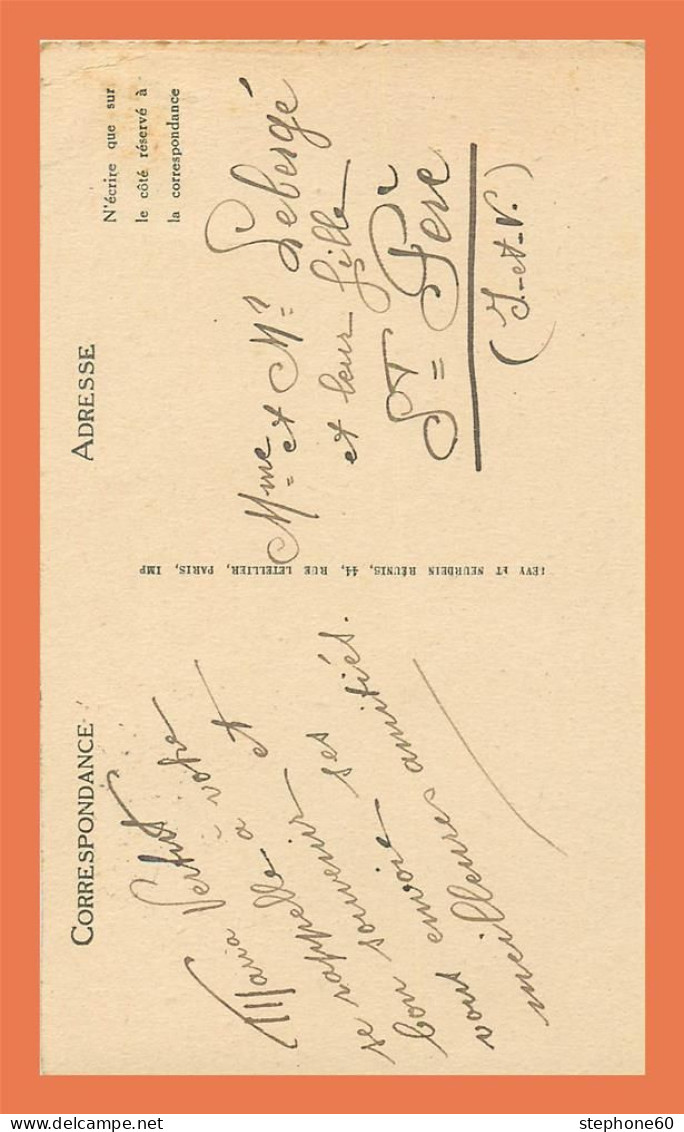 CORRESPONDANCE
Maria
se rappelle à votre
bon souvenir et
vous envoie ses
meilleures amitiés.
LÉVY ET NEURDEIN RÉUNIS, 44, RUE LETELLIER, PARIS, IMP
ADRESSE
N'écrire que sur
le côté réservé à
la correspondance
Mme et Mr Lebergé
et leur fille
St= Père
(I.-et-V.)
stephone60